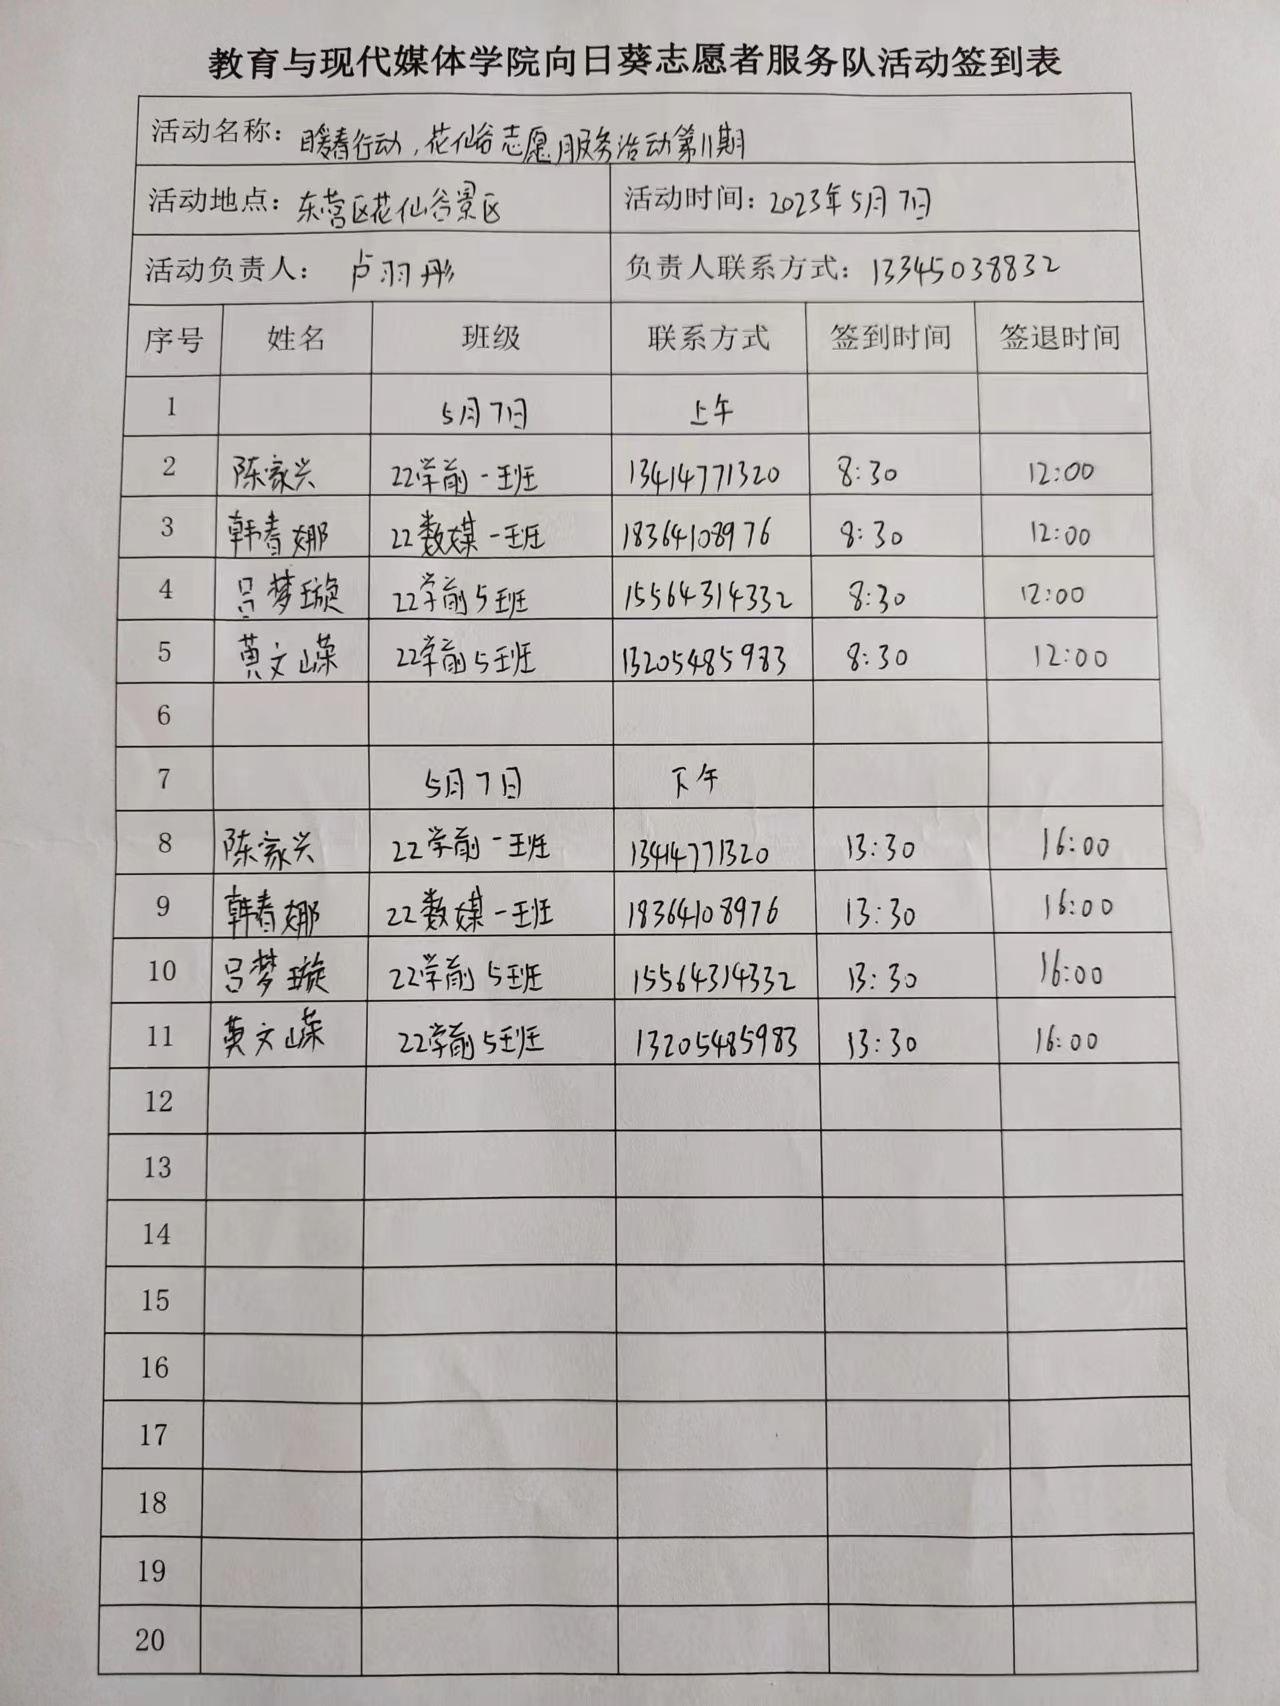 教育与现代媒体学院向日葵志愿者服务队活动签到表
活动名称: 暖春行动,花仙谷志愿服务活动第11期
活动地点: 东营区花仙谷景区 活动时间: 2023年5月7日
活动负责人: 卢羽彤 负责人联系方式: 13345038832
序号 姓名 班级 联系方式 签到时间 签退时间
1 5月7日 上午
2 陈家兴 22学前一班 13414771320 8:30 12:00
3 韩春娜 22数媒一班 18364108976 8:30 12:00
4 吕梦璇 22学前5班 15564314332 8:30 12:00
5 黄文嵘 22学前5班 13205485983 8:30 12:00
6
7 5月7日 下午
8 陈家兴 22学前一班 13414771320 13:30 16:00
9 韩春娜 22数媒一班 18364108976 13:30 16:00
10 吕梦璇 22学前5班 15564314332 13:30 16:00
11 黄文嵘 22学前5班 13205485983 13:30 16:00
12
13
14
15
16
17
18
19
20